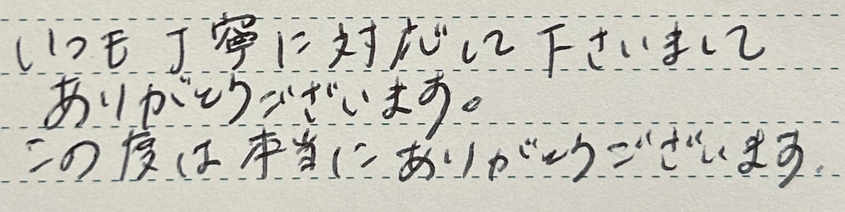 いつも丁寧に対応して下さいまして
ありがとうございます。
この度は本当にありがとうございます.